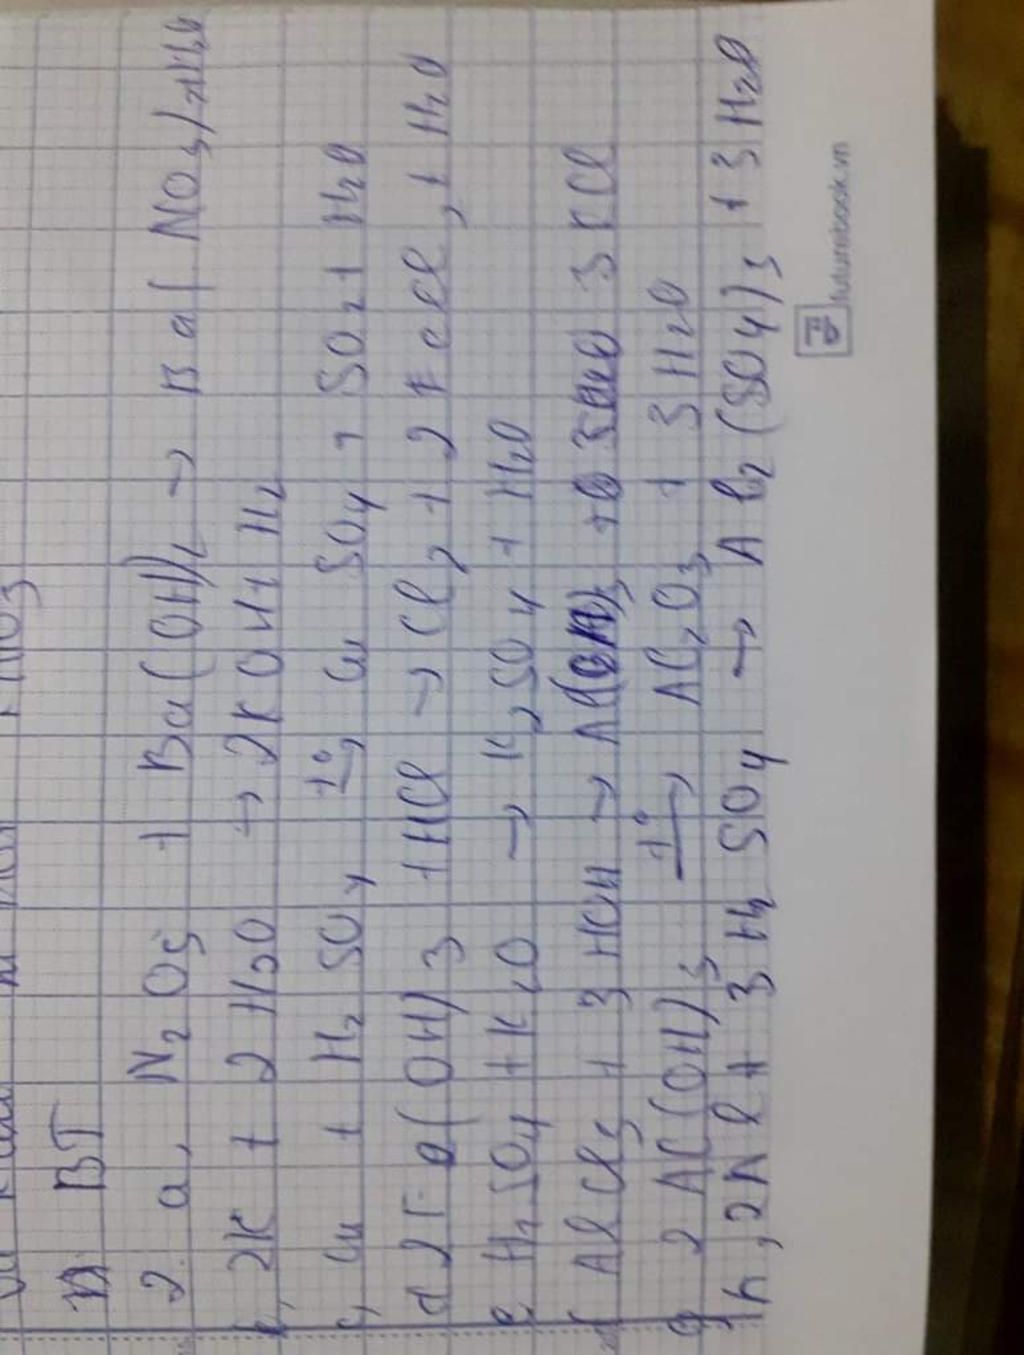 BT
2. a, N2O5 + Ba(OH)2 → Ba(NO3)2+H2O
b, 2K + 2H2O → 2KOH+ H2
c, Cu + H2SO4 t°→ CuSO4 + SO2+ H2O
d 2Fe(OH)3 +HCl → Cl2 + 2FeCl2+ H2O
e, H2SO4 +K2O → K2SO4 + H2O
f AlCl3 + 3 KOH → Al(OH)3 + 3KCl
g 2Al(OH)3 t°→ Al2O3 + 3H2O
h, 2Al + 3H2SO4 → Al2(SO4)3 + 3H2O
futurebook.vn